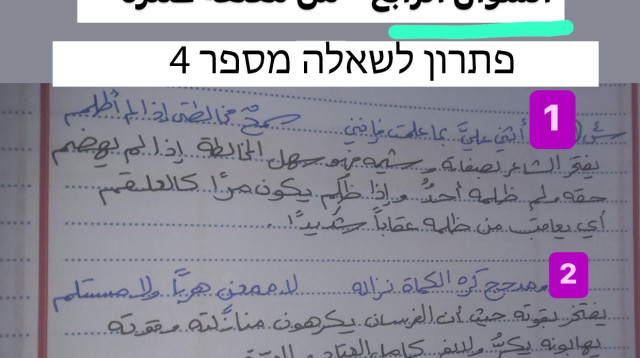 السؤال الرابع من معلقة عنترة
פתרון לשאלה מספר 4
1
س) أثني عليّ بما علمت فإنني سمحٌ مخالطتي إذا لم أظلم
يفتخر الشاعر بصفاته وشيمه فهو سهل المخالطة إذا لم يهضم
حقه ولم ظلمه أحدٌ وإذا ظُلم يكون مرًا كالعلقم
أي يعاقب من ظلمه عقاباً شديداً.
2
ومدجج كره الكماة نزاله لا ممعنٍ هرباً ولا مستسلم
يفتخر بقوته حيث أن الفرسان يكرهون منازلته وقوته
يهابونه